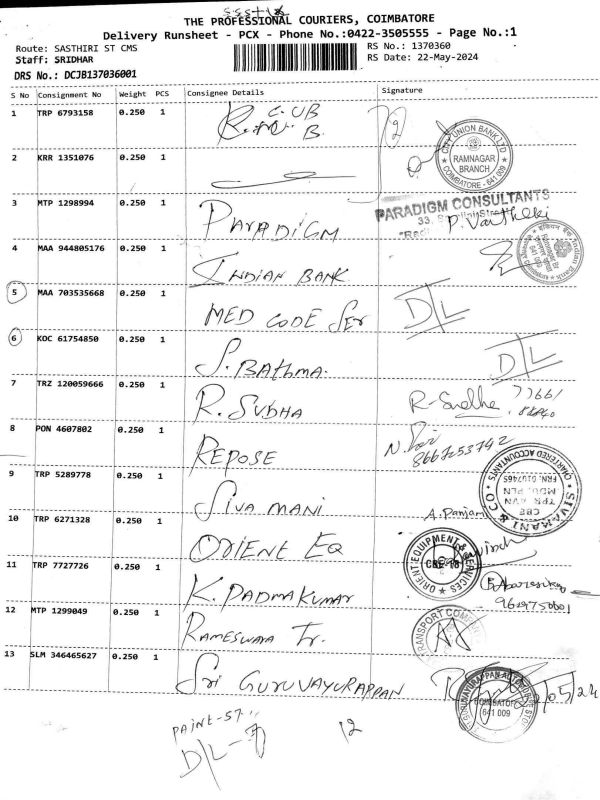 THE PROFESSIONAL COURIERS, COIMBATORE
Delivery Runsheet - PCX - Phone No.:0422-3505555 - Page No.:1
Route: SASTHIRI ST CMS RS No.: 1370360
Staff: SRIDHAR RS Date: 22-May-2024
DRS No.: DCJB137036001
S No Consignment No Weight PCS Consignee Details Signature
1 TRP 6793158 0.250 1 C.UB
B.
CITY UNION BANK LTD
RAMNAGAR
BRANCH
COIMBATORE - 641 009
2 KRR 1351076 0.250 1
3 MTP 1298994 0.250 1 PARADIGM
PARADIGM CONSULTANTS
33,
4 MAA 944805176 0.250 1 INDIAN BANK
Indian Bank
5 MAA 703535668 0.250 1 MED CODE Ser D/L
6 KOC 61754850 0.250 1 S. BAthma. D/L
7 TRZ 120059666 0.250 1 R. SUBHA
8 PON 4607802 0.250 1 REPOSE
8667253742
9 TRP 5289778 0.250 1 SIVA MANI
SIVAMANI & CO
CHARTERED ACCOUNTANTS
10 TRP 6271328 0.250 1 ORIENT EQ
A. Panjami
ORIENT EQUIPMENT & SERVICES
CBE-18
11 TRP 7727726 0.250 1 K. PADMAKUMAR
12 MTP 1299049 0.250 1 RAMESWARA Tr.
13 SLM 346465627 0.250 1 Sri GURUVAYURAPPAN
COIMBATORE
641 009
PAINT-57
D/L-
12